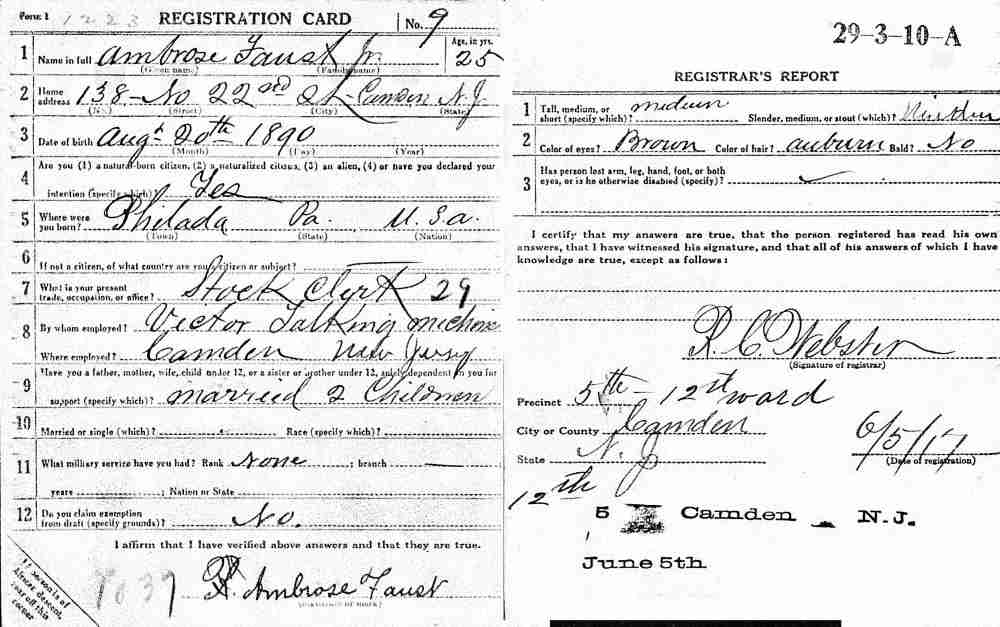 Form 1 1223 REGISTRATION CARD No. 9
1 Name in full Ambrose Faust Jr. Age, in yrs. 25
(Given name) (Family name)
2 Home address 138-No 22nd St- Camden N.J.
(No.) (Street) (City) (State)
3 Date of birth Augt 20th 1890
(Month) (Day) (Year)
4 Are you (1) a natural-born citizen, (2) a naturalized citizen, (3) an alien, (4) or have you declared your
intention (specify which)? Yes
5 Where were you born? Philada Pa. U.S.a.
(Town) (State) (Nation)
6 If not a citizen, of what country are you a citizen or subject?
7 What is your present trade, occupation, or office? Stock Clerk 29
8 By whom employed? Victor Talking Mechine
Where employed? Camden New Jersey
9 Have you a father, mother, wife, child under 12, or a sister or brother under 12, solely dependent on you for
support (specify which)? married 2 Children
10 Married or single (which)? Race (specify which)?
11 What military service have you had? Rank None ; branch
years ; Nation or State
12 Do you claim exemption from draft (specify grounds)? No.
I affirm that I have verified above answers and that they are true.
Ambrose Faust
If person is of
African descent,
tear off this
corner
29-3-10-A
REGISTRAR'S REPORT
1 Tall, medium, or short (specify which)? medium Slender, medium, or stout (which)?
2 Color of eyes? Brown Color of hair? auburn Bald? No
3 Has person lost arm, leg, hand, foot, or both
eyes, or is he otherwise disabled (specify)?
I certify that my answers are true, that the person registered has read his own
answers, that I have witnessed his signature, and that all of his answers of which I have
knowledge are true, except as follows:
R. C. Webster
(Signature of registrar)
Precinct 5th - 12th ward
City or County Camden
State N. J. 6/5/17
(Date of registration)
12th
5 Camden N.J.
June 5th